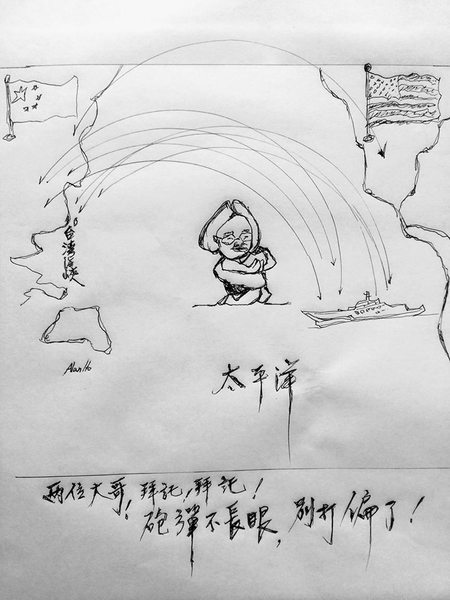 台灣海峽
Alan Ho
太平洋
兩位大哥!拜託!拜託!
砲彈不長眼,別打偏了!